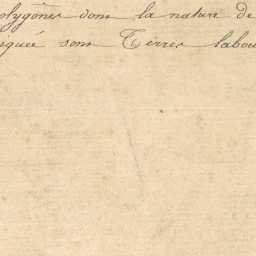 olygônes dont la nature de
squée sont Terres labou